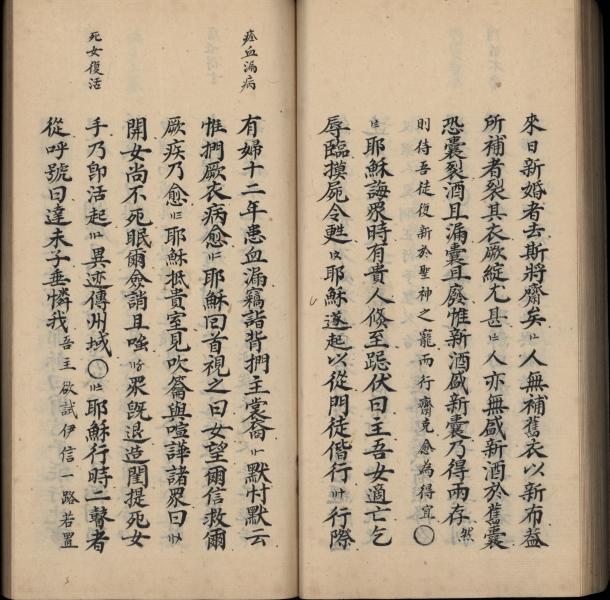 來日新婚者去斯將齋矣 人無補舊衣以新布益
所補者裂其衣厥綻尤甚 人亦無盛新酒於舊囊
恐囊裂酒且漏囊且廢惟新酒盛新囊乃得兩存 然
則待吾徒復新於聖神之寵而行齋克愈為得宜〇
耶穌誨眾時有貴人倏至跽伏曰主吾女適亡乞
辱臨摸屍令甦 耶穌遂起以從門徒偕行 行際
痊血漏病
有婦十二年患血漏竊詣背捫主裳裔 默忖默云
惟捫厥衣病愈 耶穌囘首視之曰女望爾信救爾
厥疾乃愈 耶穌抵貴室見吹籥與喧譁諸眾曰
開女尚不死眠爾僉誚且嗤 眾既退造閨提死女
手乃卽活起 異迹傳州域〇 耶穌行時二瞽者
死女復活
從呼號曰達未子垂憐我 吾主欲試伊信一路若置